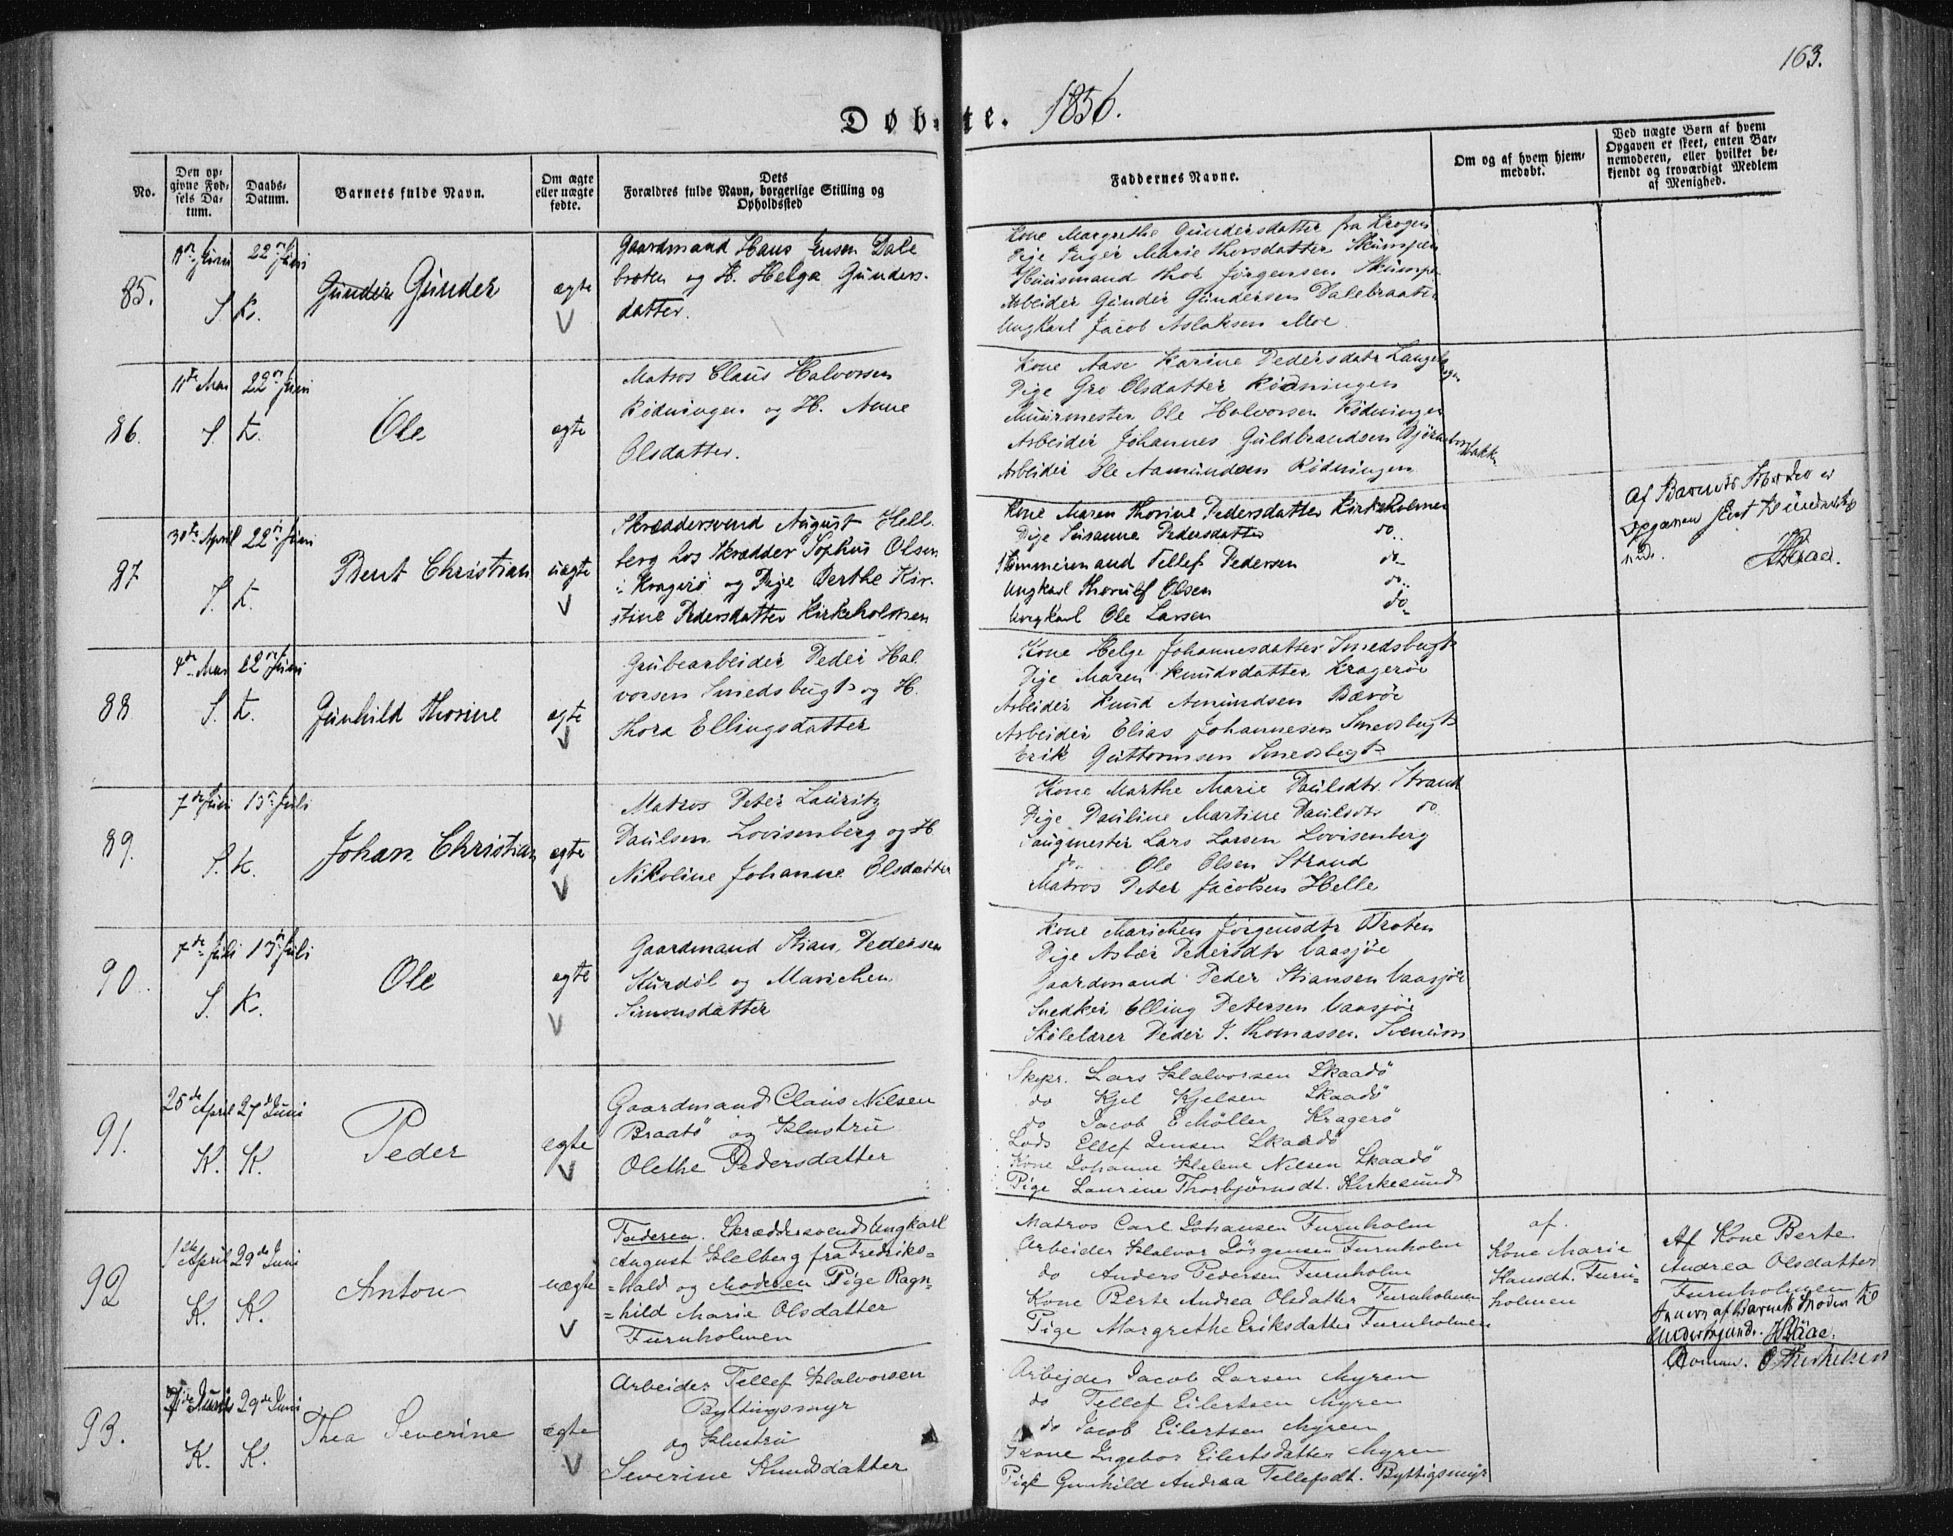 163.
Døbte. 1856.
No.
Den opgivne Fødsels Datum.
Daabs-Datum.
Barnets fulde Navn.
Om ægte eller uægte fødte.
Dets Forældres fulde Navn, borgerlige Stilling og Opholdssted
Faddernes Navne.
Om og af hvem hjemmedøbt.
Ved uægte Børn af hvem Opgaven er skeet, enten Barnemoderen, eller hvilket bekjendt og troværdigt Medlem af Menighed.
85.
Juni 22de Juni
S. K.
Gunder Gunder
ægte
V
Gaardmand Hans Jensen Dale
broten og H. Helga Gunders-
datter.
Kone Margrethe Gundersdatter fra Krogen
Pige Inger Marie Thorsdatter Skumpen
Huusmand Thor Jørgensen
Arbeider Gunder Gundersen Dalebraaten
Ungkarl Jacob Aslaksen Moe
86.
11te Mai 22de Juni
S. K.
Ole
egte
Matros Claus Halvorsen
Rödningen og H. Anne
Olsdatter.
Kone Aase Karine Pedersdatr
Pige Gro Olsdatter Rödningen
Muurmester Ole Halvorsen Rödningen
Arbeider Johannes Guldbrandsen
Arbeider Ole Aamundsen Rödningen
87
30te April 22de Juni
S. K.
Bent Christian
uægte
V
Skræddersvend August Hell-
berg hos Skrædder Sophus Olsen
i Kragerö og Pige Berthe Kir-
stine Pedersdatter Kirkeholmen
Kone Maren Thorine Pedersdatter Kirkeholmen
Pige Susanne Pedersdatter do.
Tömmermand Tellef Pedersen do
Ungkarl Thorulf Olsen do
Ungkarl Ole Larsen do
Af Barnets Moder er
Opgaven
88
4de Mai 22de Juni
S. K.
Gunhild Thorine
egte
V
Grubearbeider Peder Hal-
vorsen Smedsbugt og H.
Thora Ellingsdatter
Kone Helge Johannesdatter Smedsbugt
Pige Maren Knudsdatter Kragerøe
Arbeider Knud Amundsen Bærøe
Arbeider Elias Johannesen Smedsbugt
Erik Guttormsen Smedsbugt
89.
7de Juni 13de Juli
S. K.
Johan Christian
egte
V
Matros Peter Lauritz
Paulsen Lovisenberg og H.
Nikoline Johanne Olsdatter
Kone Marthe Marie Paulsdtr. Strand
Pige Pauline Martine Paulsdtr do
Saugmester Lars Larsen Lovisenberg
do Ole Olsen Strand
Matros Peter Jacobsen Helle
90
7de Juli 13de Juli
S. K.
Ole
egte
V
Gaardmand Stian Pedersen
Sturdöl og Marichen
Simonsdatter
Kone Marichen Jörgensdtr Broten
Pige Asbør Pedersdtr Vaasjøe
Gaardmand Peder Stiansen Vaasjøe
Snedker Elling Petersen Vaasjøe
Skolelærer Peder J. Thomassen
91.
25de April 27de Juni
K. K.
Peder
egte
V
Gaardmand Claus Nilsen
Braatö og Hustru
Olethe Pedersdatter
Skipr. Lars Halvorsen Skaadö
do Kjel Kjelsen Skaadö
do Jacob E Möller Kragerö
Lods Ellef Jensen Skaadö
Kone Johanne Helene Nilsen Skaadö
Pige Laurine Thorbjørnsdt. Kirkesund
92
1ste April 29de Juni
K. K.
Anton
uægte
V
Faderen. Skræddersvend Ungkarl
August Helberg fra Fredriks=
=hald og Moderen Pige Ragn=
=hild Marie Olsdatter
Furuholmen
Matros Carl Johansen Furuholm
Arbeider Halvor Jörgensen Furuholm
do Anders Pedersen Furuholm
Kone Berte Andrea Olsdatter Furuholmen
Pige Margrethe Eriksdatter Furuholmen
af
Kone Marie
Hansdt. Furu-
holmen
Af Kone Berte
Andrea Olsdatter
Furuholmen
93.
29de Juni
K. K.
Thea Severine
ægte
V
Arbeider Tellef Halvorsen
Byttingsmyr
og Hustru
Severine Knudsdatter
Arbejder Jacob Larsen Myren
do Tellef Eilertsen Myren
do Jacob Eilertsen Myren
Kone Ingebor Eilertsdatter Myren
Pige Gunhild Andrea Tellefsdt. Byttigsmyr